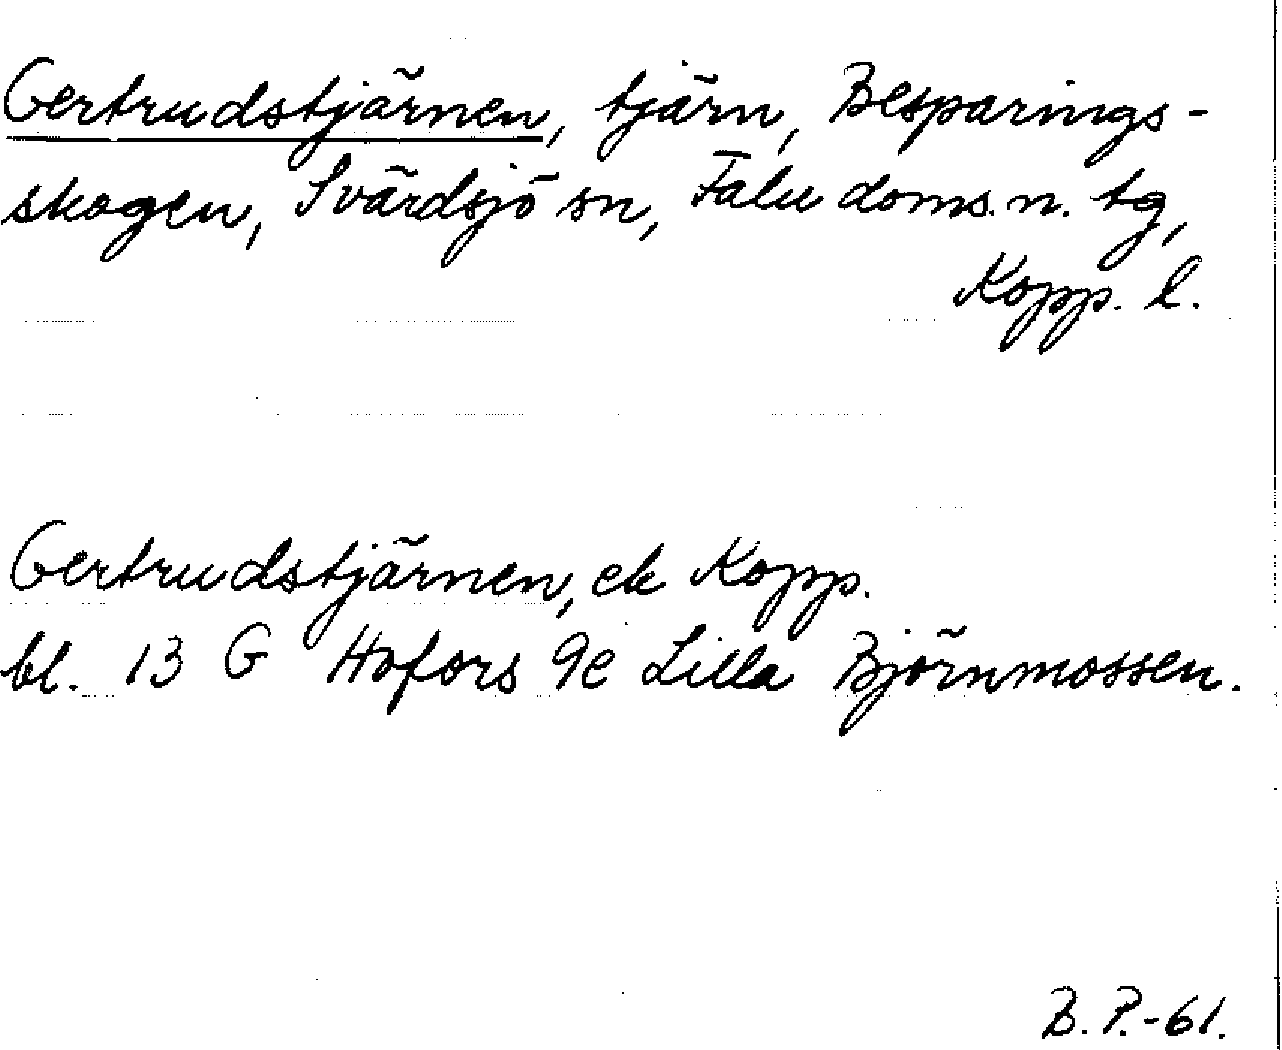 Gertrudstjärnen, tjärn, Besparings-
skogen, Svärdsjö sn, Falu doms.n. tg,
Kopp. l.
Gertrudstjärnen, ek Kopp.
bl. 13 G Hofors 9e Lilla Björnmossen.
B. P.-61.